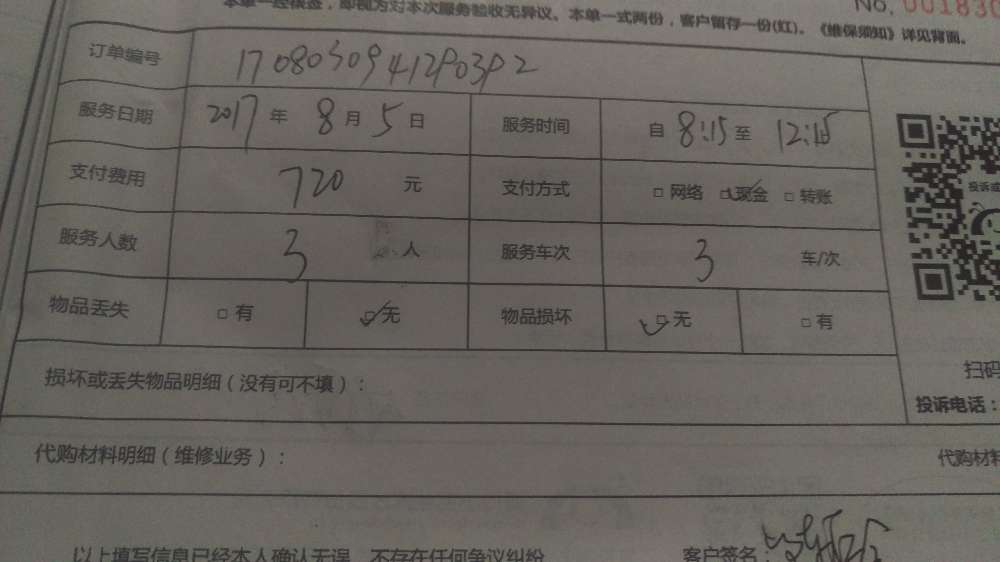 本单一经核签，即视为对本次服务验收无异议。本单一式两份，客户留存一份(红)。《维保须知》详见背面。
No. 001830
订单编号 170803094412P03P2
服务日期 2017 年 8 月 5 日 服务时间 自 8:15 至 12:15
支付费用 720 元 支付方式 □ 网络 □ 现金 □ 转账
服务人数 3 人 服务车次 3 车/次
物品丢失 □ 有 □ 无 物品损坏 □ 无 □ 有
损坏或丢失物品明细（没有可不填）：
扫码
投诉电话：
代购材料明细（维修业务）： 代购材料
以上填写信息已经本人确认无误，不存在任何争议纠纷 客户签名：